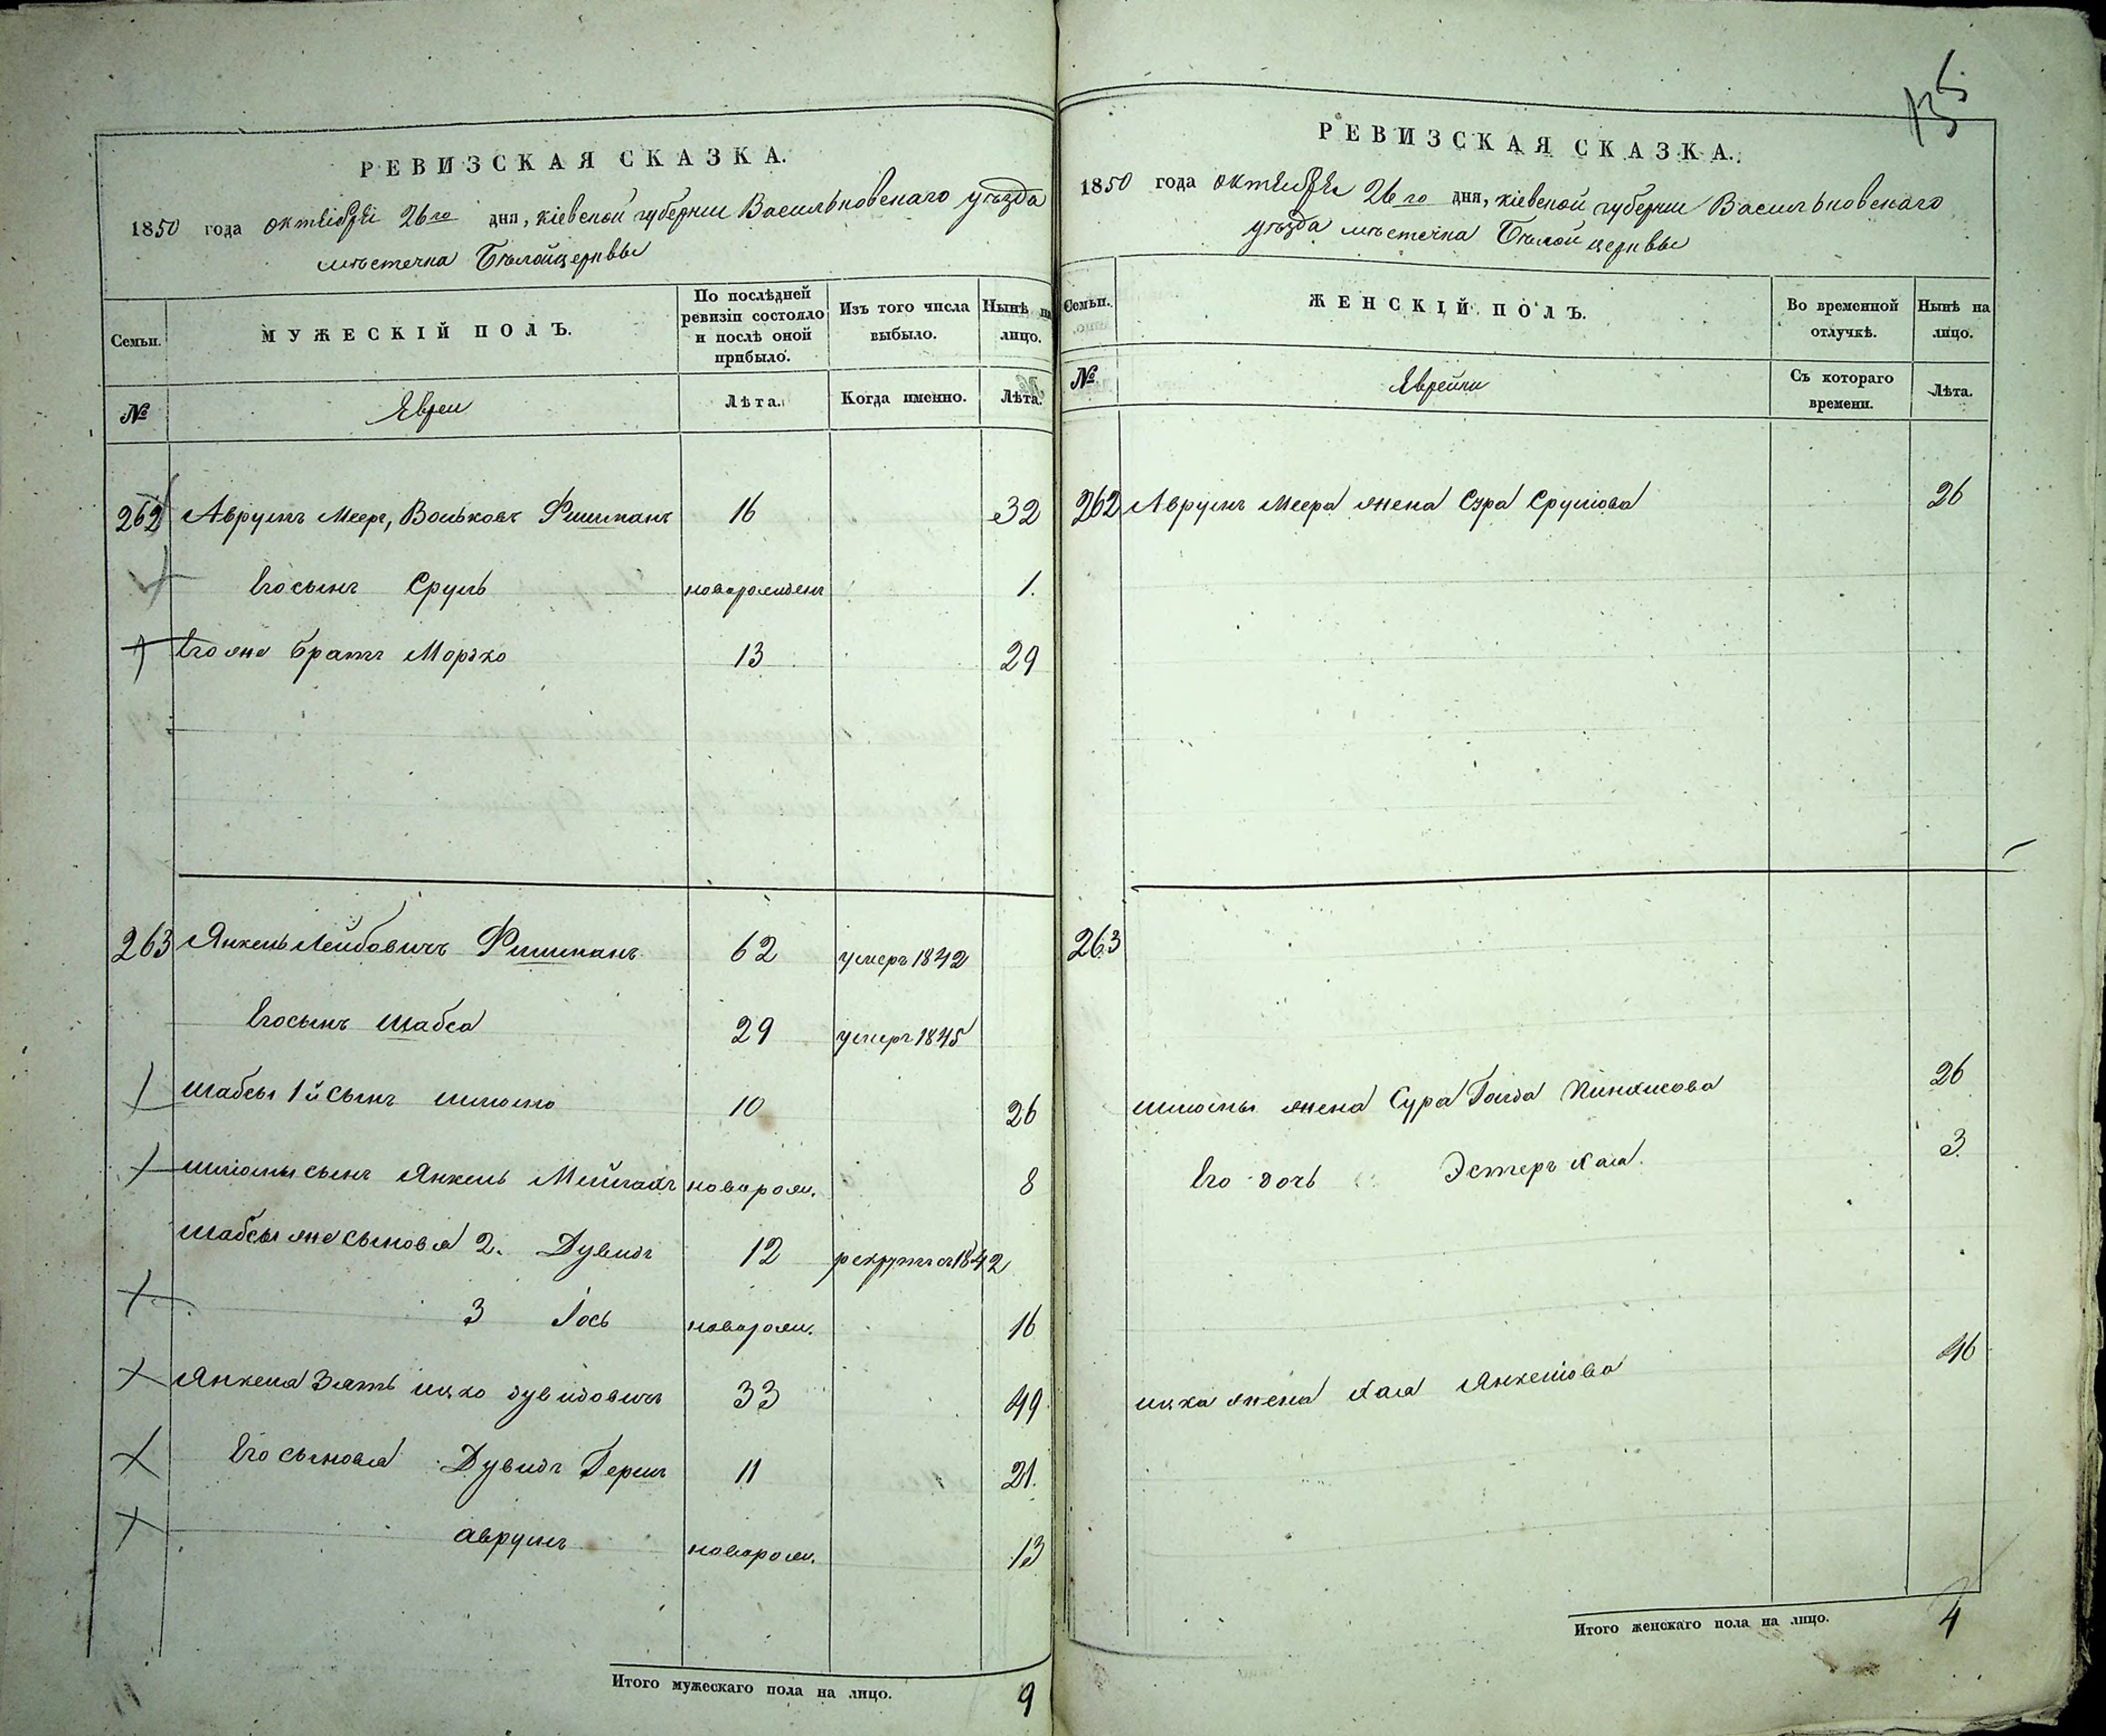 РЕВИЗСКАЯ СКАЗКА.
1850 года октября 26го дня, кіевской губерніи Васильковскаго уѣзда
мѣстечка Бѣлойцерквы
Семьи.
МУЖЕСКІЙ ПОЛЪ.
По послѣдней ревизіи состояло и послѣ оной прибыло.
Изъ того числа выбыло.
Нынѣ на лицо.
№
Евреи
Лѣта.
Когда именно.
Лѣта.
262 Аврумъ Мееръ, Вольковъ Фишманъ 16 32
Его сынъ Сруль новорожденъ 1.
Его же братъ Моршко 13 29
263 Янкель Лейбовичъ Фишманъ 62 умеръ 1842
Его сынъ Шабса 29 умеръ 1845
Шабсы 1й сынъ Шлиомо 10 26
Шлиомы сынъ Янкель новорож. 8
Шабсы же сыновья 2. Дувидъ 12 рекрутъ съ 1842
3 Іось новорож. 16
Янкеля Зять ицко дувидовичъ 33 49
Его сыновья Дувидъ Гершъ 11 21.
аврумъ новорож. 13
Итого мужескаго пола на лицо. 9
135
РЕВИЗСКАЯ СКАЗКА.
1850 года октября 26го дня, кіевской губерніи Васильковскаго
уѣзда мѣстечка Бѣлой церквы
Семьи.
ЖЕНСКІЙ ПОЛЪ.
Во временной отлучкѣ.
Нынѣ на лицо.
№
Еврейки
Съ котораго времени.
Лѣта.
262 Аврумъ Меера жена Сура Срулова 26
263
Шлиомы жена Сура Голда Пинхасова 26
Его дочь Эстеръ Хая. 3
ицка жена Хая Янкелёва 46
Итого женскаго пола на лицо. 4